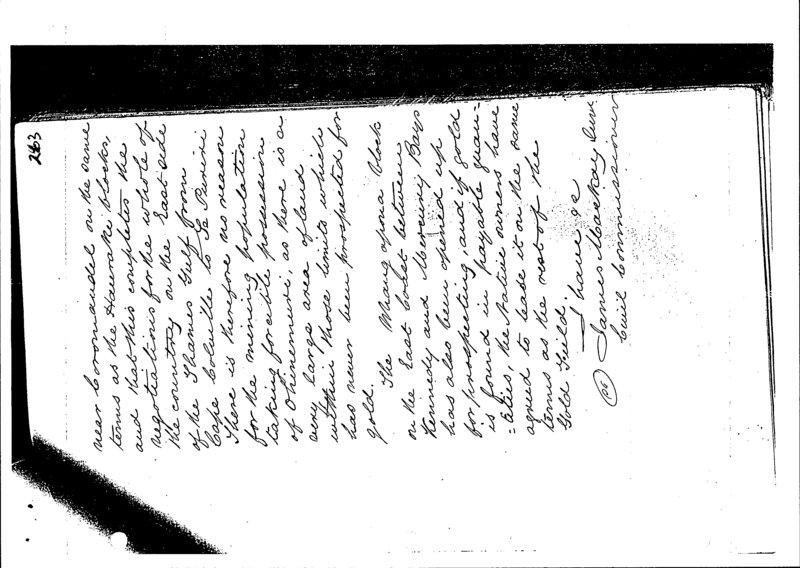 263
near Coromandel on the same
terms as the Hauraki blocks,
and that this completes the
negotiations for the whole of
the country on the East side
of the Thames Gulf from
Cape Colville to Te Puriri
There is therefore no reason
for the mining population
taking forcible possession
of Ohinemuri, as there is a
very large area of land
within those limits which
has never been prospected for
gold.
The Whangapoua block
on the East Coast between
Kennedy and Mercury Bays
has also been opened up
for prospecting and if gold
is found in payable quan-
=tities, the Native owners have
agreed to lease it on the same
terms as the rest of the
Gold Field.
I have &c
James Mackay Junr
Civil Commissioner